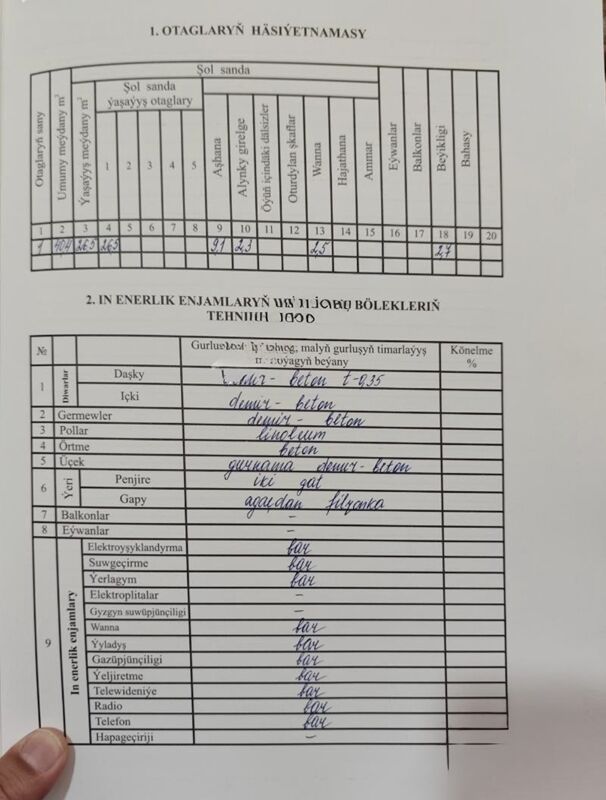 1. OTAGLARYŇ HÄSIÝETNAMASY
Şol sanda
Şol sanda
ýaşaýyş otaglary
Otaglaryň sany
Umumy meýdany m²
Ýaşaýyş meýdany m²
1 2 3 4 5
Aşhana
Alynky girelge
Öýüň içindäki dälsizler
Oturdylan şkaflar
Wanna
Hajathana
Ammar
Eýwanlar
Balkonlar
Beýikligi
Bahasy
1 2 3 4 5 6 7 8 9 10 11 12 13 14 15 16 17 18 19 20
1 40,4 26,5 26,5 9,1 2,3 2,5 2,7
2. IN ENERLIK ENJAMLARYŇ BÖLEKLERIŇ
№ malyň gurluşyň timarlaýyş Könelme
beýany %
1 Diwarlar Daşky beton t-0,35
Içki demir-beton
2 Germewler demir-beton
3 Pollar linoleum
4 Örtme beton
5 Üçek gurnama demir-beton
6 Ýeri Penjire iki gat
Gapy agaçdan filýonka
7 Balkonlar –
8 Eýwanlar –
9 In enerlik enjamlary Elektroyşyklandyrma bar
Suwgeçirme bar
Ýerlagym bar
Elektroplitalar –
Gyzgyn suwüpjünçiligi –
Wanna bar
Ýyladyş bar
Gazüpjünçiligi bar
Ýeljiretme bar
Telewideniýe bar
Radio bar
Telefon bar
Hapageçiriji –